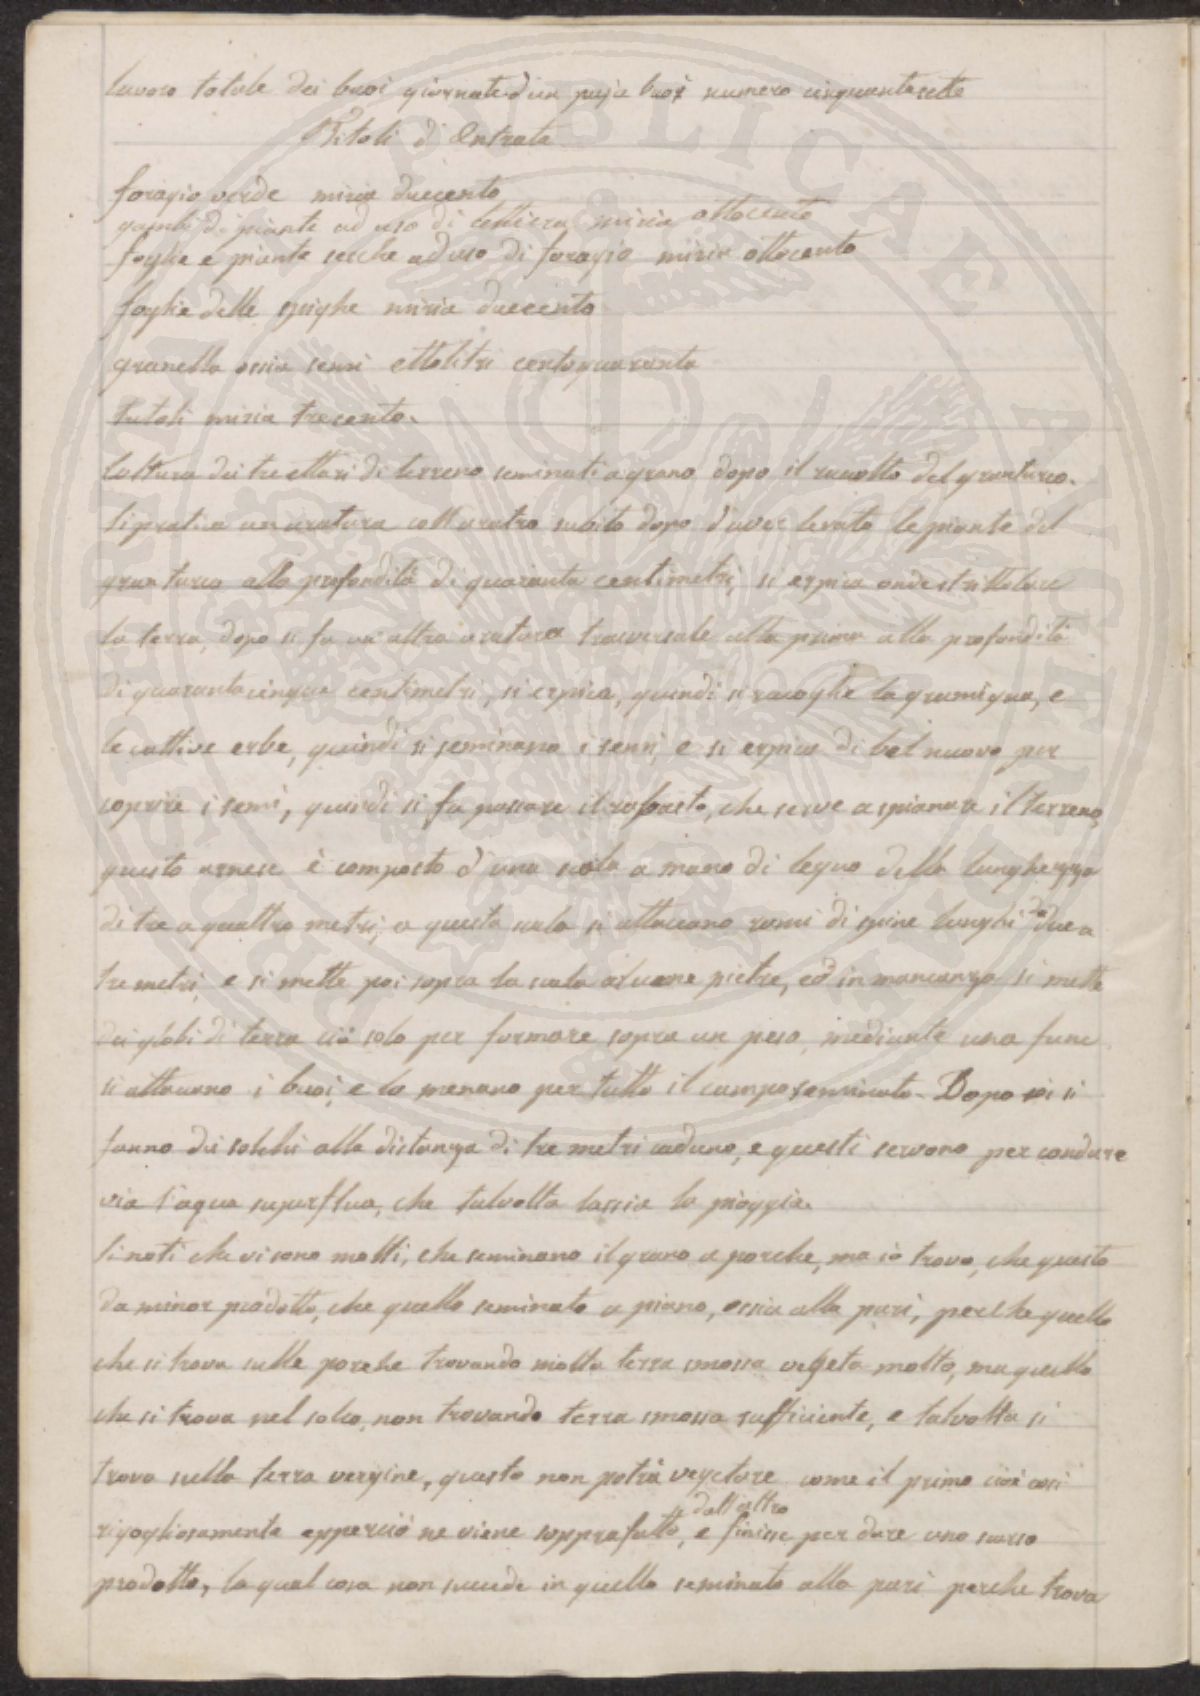 lavoro totale dei buoi giornate d'un pajo buoi numero cinquantasette
Titoli d'Entrata
foragio verde miria duecento
gambi di piante ad uso di lettiera miria ottocento
foglie e piante secche ad uso di foragio miria ottocento
foglie delle spighe miria duecento
granella ossia semi ettolitri centoquaranta
tutoli miria trecento.
Coltura dei tre ettari di terreno seminati a grano dopo il racolto del granturco.
Si pratica un aratura coll aratro subito dopo d'aver levato le piante del
granturco alla profondità di quaranta centimetri, si erpica onde stritolare
la terra, dopo si fa un altra aratura trasversale alla prima alla profondità
di quarantacinque centimetri, si erpica, quindi si racoglie la gramigna, e
le cattive erbe, quindi si seminano i semi, e si erpica di bel nuovo per
coprire i semi, quindi si fa passare il, che serve a spianare il terreno,
questo arnese è composto d'una scala a mano di legno della lunghezza
di tre a quattro metri, a questa scala si attaccano rami di spine lunghi da due a
tre metri, e si mette poi sopra la scala alcune pietre, ed in mancanza si mette
dei globi di terra ciò solo per formare sopra un peso, mediante una fune
si attacano i buoi, e la menano per tutto il campo seminato. Dopo poi si
fanno dei solchi alla distanza di tre metri caduno, e questi servono per condure
via l'aqua superflua, che talvolta lascia la pioggia.
Si noti che vi sono molti, che seminano il grano a porche, ma io trovo, che questo
da minor prodotto, che quello seminato a piano, ossia alla pari, perche quello
che si trova sulle porche trovando molta terra smossa vegeta molto, ma quello
che si trova nel solco, non trovando terra smossa sufficiente, e talvolta si
trova sulla terra vergine, questo non potrà vegetare come il primo cioè così
rigogliosamente epperciò ne viene sopprafatto dall'altro, e finisce per dare uno scarso
prodotto, la qual cosa non succede in quello seminato alla pari perche trova